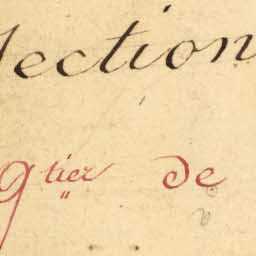 Section
9tier de